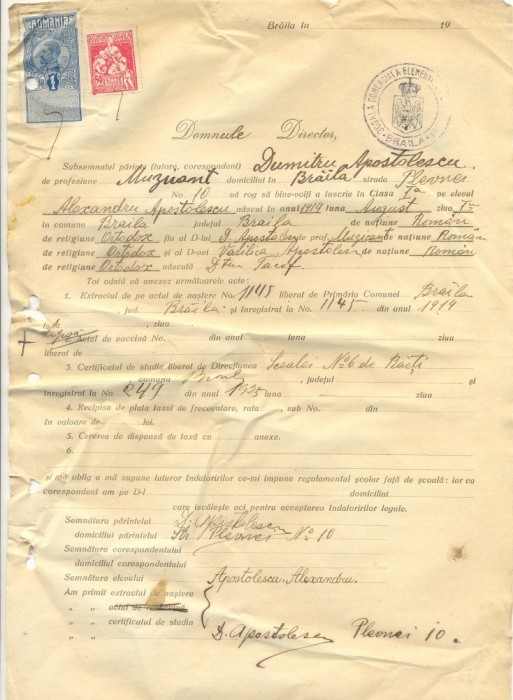 Brăila în 19
ROMANIA
1
ȘCOALA COMERCIALA ELEMENTARA
BRAILA
Domnule Director,
Subsemnatul părinte (tutore, corespondent) Dumitru Apostolescu
de profesiune Muzicant domiciliat în Brăila strada Plevnei
No. 10 vă rog să bine-voiți a înscrie în Clasa Ia pe elevul
Alexandru Apostolescu născut în anul 1919 luna August ziua
în comuna Braila județul Braila de națiune Română
de religiune Ortodox fiu al D-lui D. Apostolescu de prof. Muzicant de națiune Română
de religiune Ortodox și al D-nei Vasilica Apostolescu de națiune Română
de religiune Ortodox născută
Tot odată vă anexez următoarele acte:
1. Extractul de pe actul de naștere No. 1145 liberat de Primăria Comunei Brăila
, jud. Brăila și înregistrat la No. 1145 din anul 1919
luna ziua
actul de vaccină No. din anul luna ziua
liberat de
3. Certificatul de studie liberat de Direcțiunea Scoalei No 6 de Baeți
comuna Braila , județul și
înregistrat la No. 249 din anul 1925 luna ziua
4. Recipisa de plata taxei de frecventare, rata sub No. din
în valoare de lei.
5. Cererea de dispensă de taxă cu anexe.
6.
și mă oblig a mă supune tuturor îndatoririlor ce-mi impune regulamentul școlar față de școală: iar ca
corespondent am pe D-l domiciliat
care iscălește aci pentru acceptarea îndatoririlor legale.
Semnătura părintelui D. Apostolescu
domiciliul părintelui Str. Plevnei No 10
Semnătura corespondentului
domiciliul corespondentului
Semnătura elevului Apostolescu Alexandru.
Am primit extractul de naștere
" " actul de
" " certificatul de studiu
D. Apostolescu Plevnei 10.